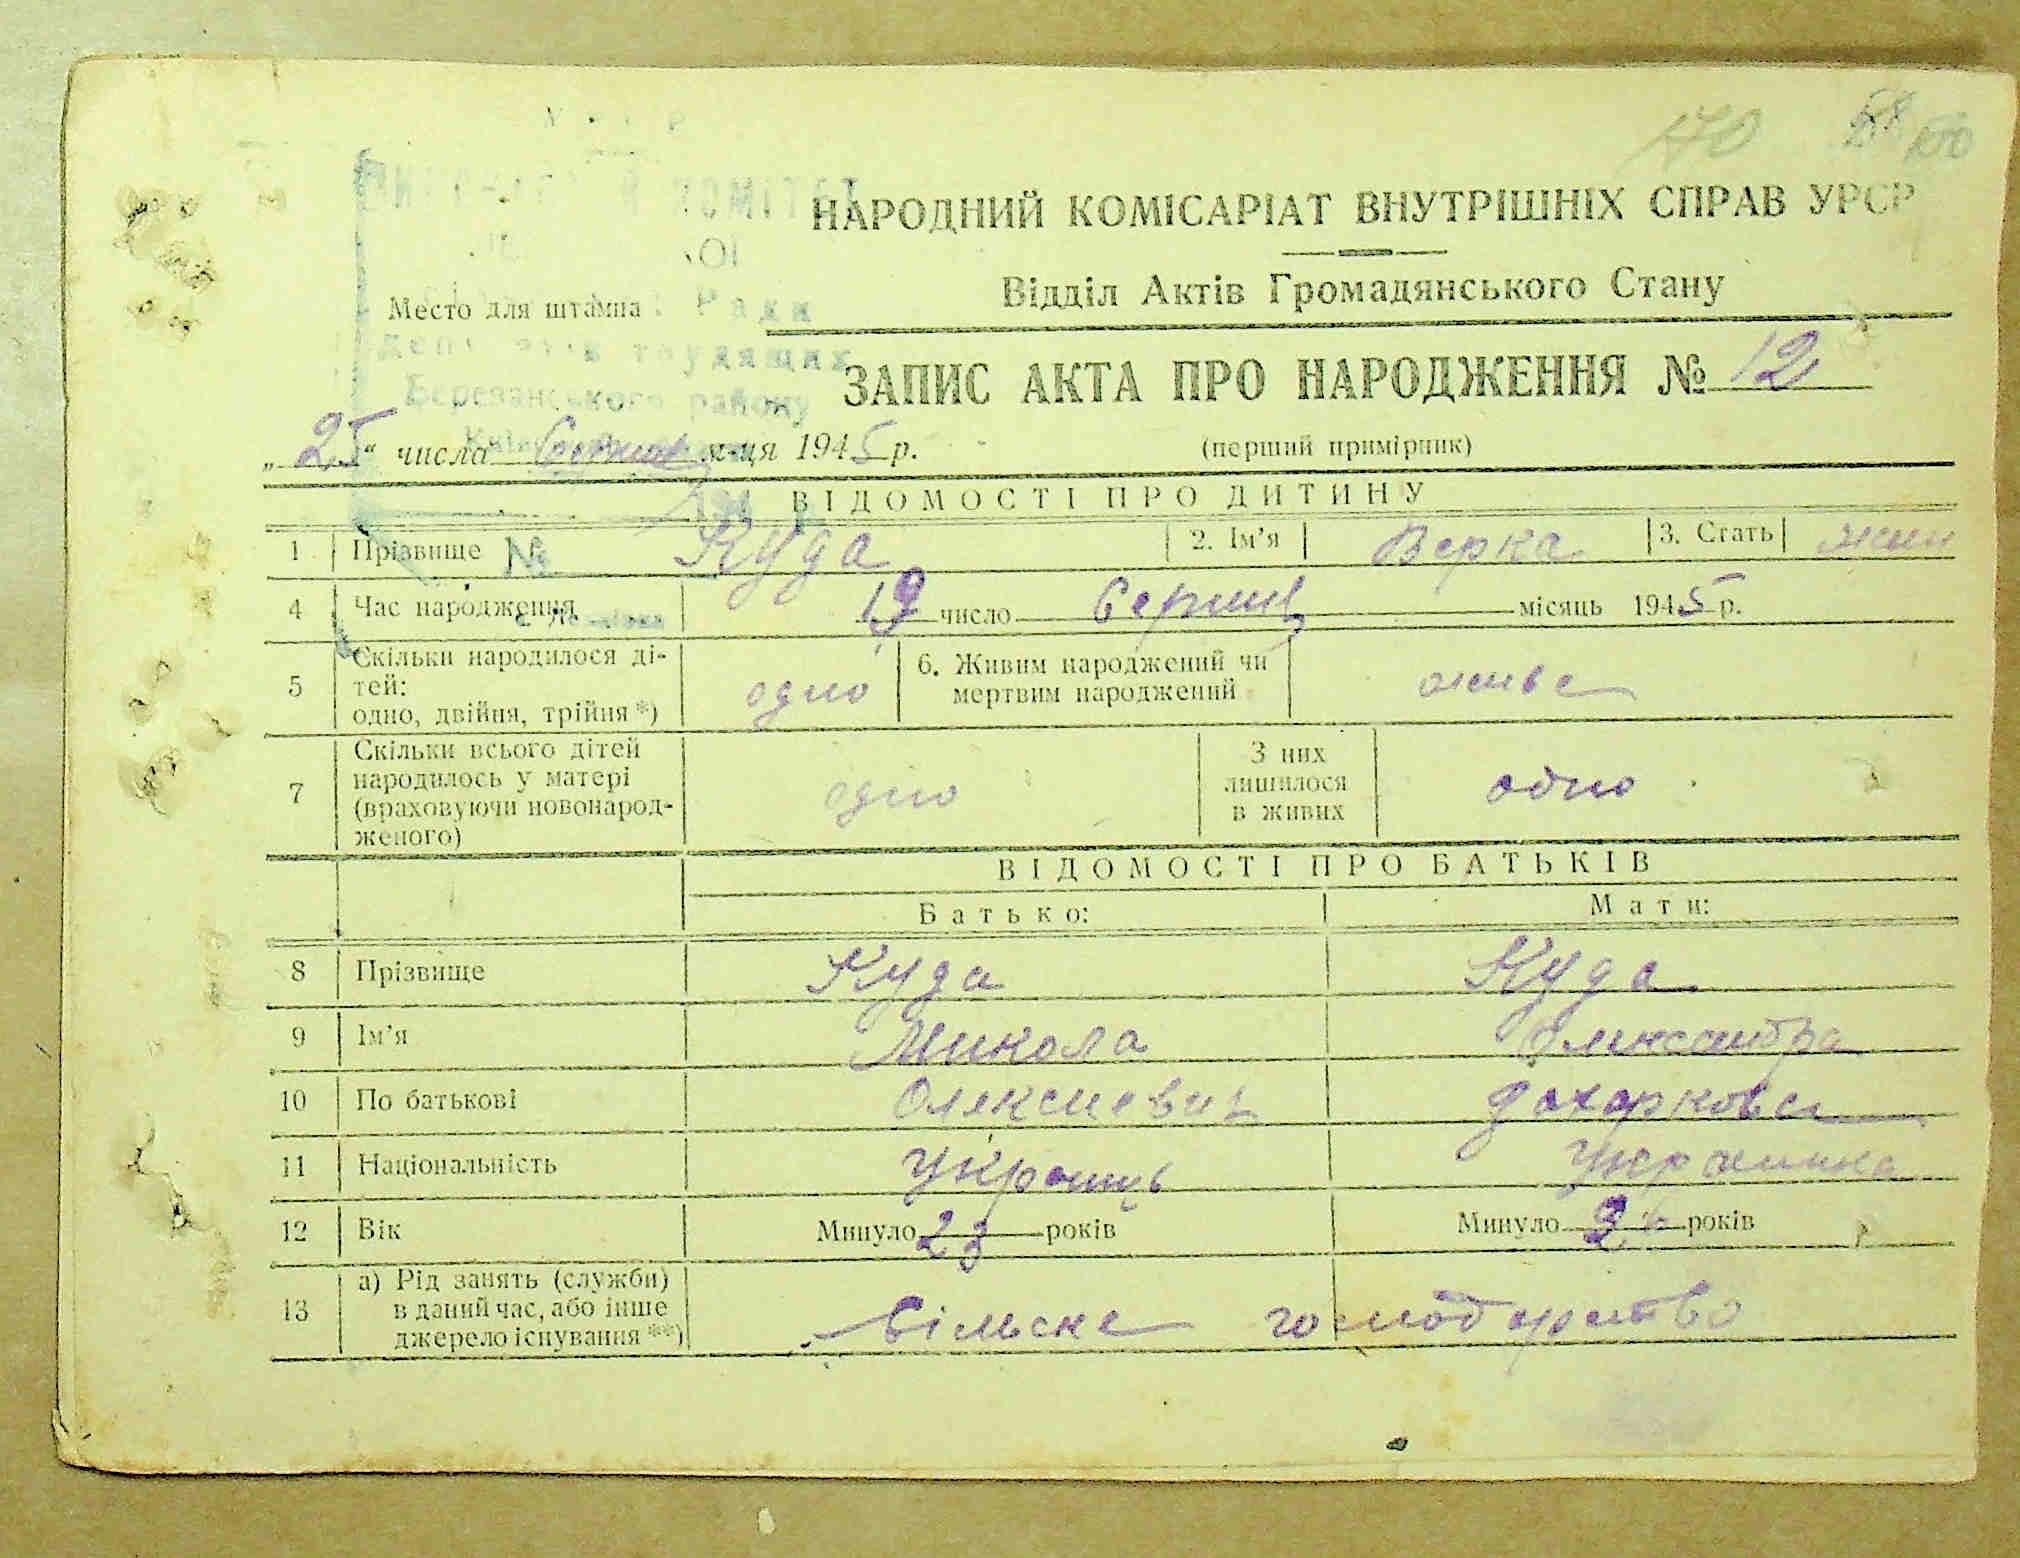 170 100
НАРОДНИЙ КОМІСАРІАТ ВНУТРІШНІХ СПРАВ УРСР
Відділ Актів Громадянського Стану
Место для штампа
Ради
трудящих
Березанського району
ЗАПИС АКТА ПРО НАРОДЖЕННЯ № 12
„25“ числа Серпня м-ця 1945 р. (перший примірник)
ВІДОМОСТІ ПРО ДИТИНУ
1 Прізвище Куда 2. Ім’я Верка 3. Стать жин
№
4 Час народження 19 число Серпня місяць 1945 р.
5 Скільки народилося ді-
тей:
одно, двійня, трійня*) одно 6. Живим народжений чи
мертвим народжений живе
7 Скільки всього дітей
народилось у матері
(враховуючи новонарод-
женого) одно З них
лишилося
в живих одно
ВІДОМОСТІ ПРО БАТЬКІВ
Батько: Мати:
8 Прізвище Куда Куда
9 Ім’я Микола Олександра
10 По батькові Олексиевич
11 Національність Украинць Украинка
12 Вік Минуло 23 років Минуло років
13 а) Рід занять (служби)
в даний час, або інше
джерело існування**) Сільске господарство